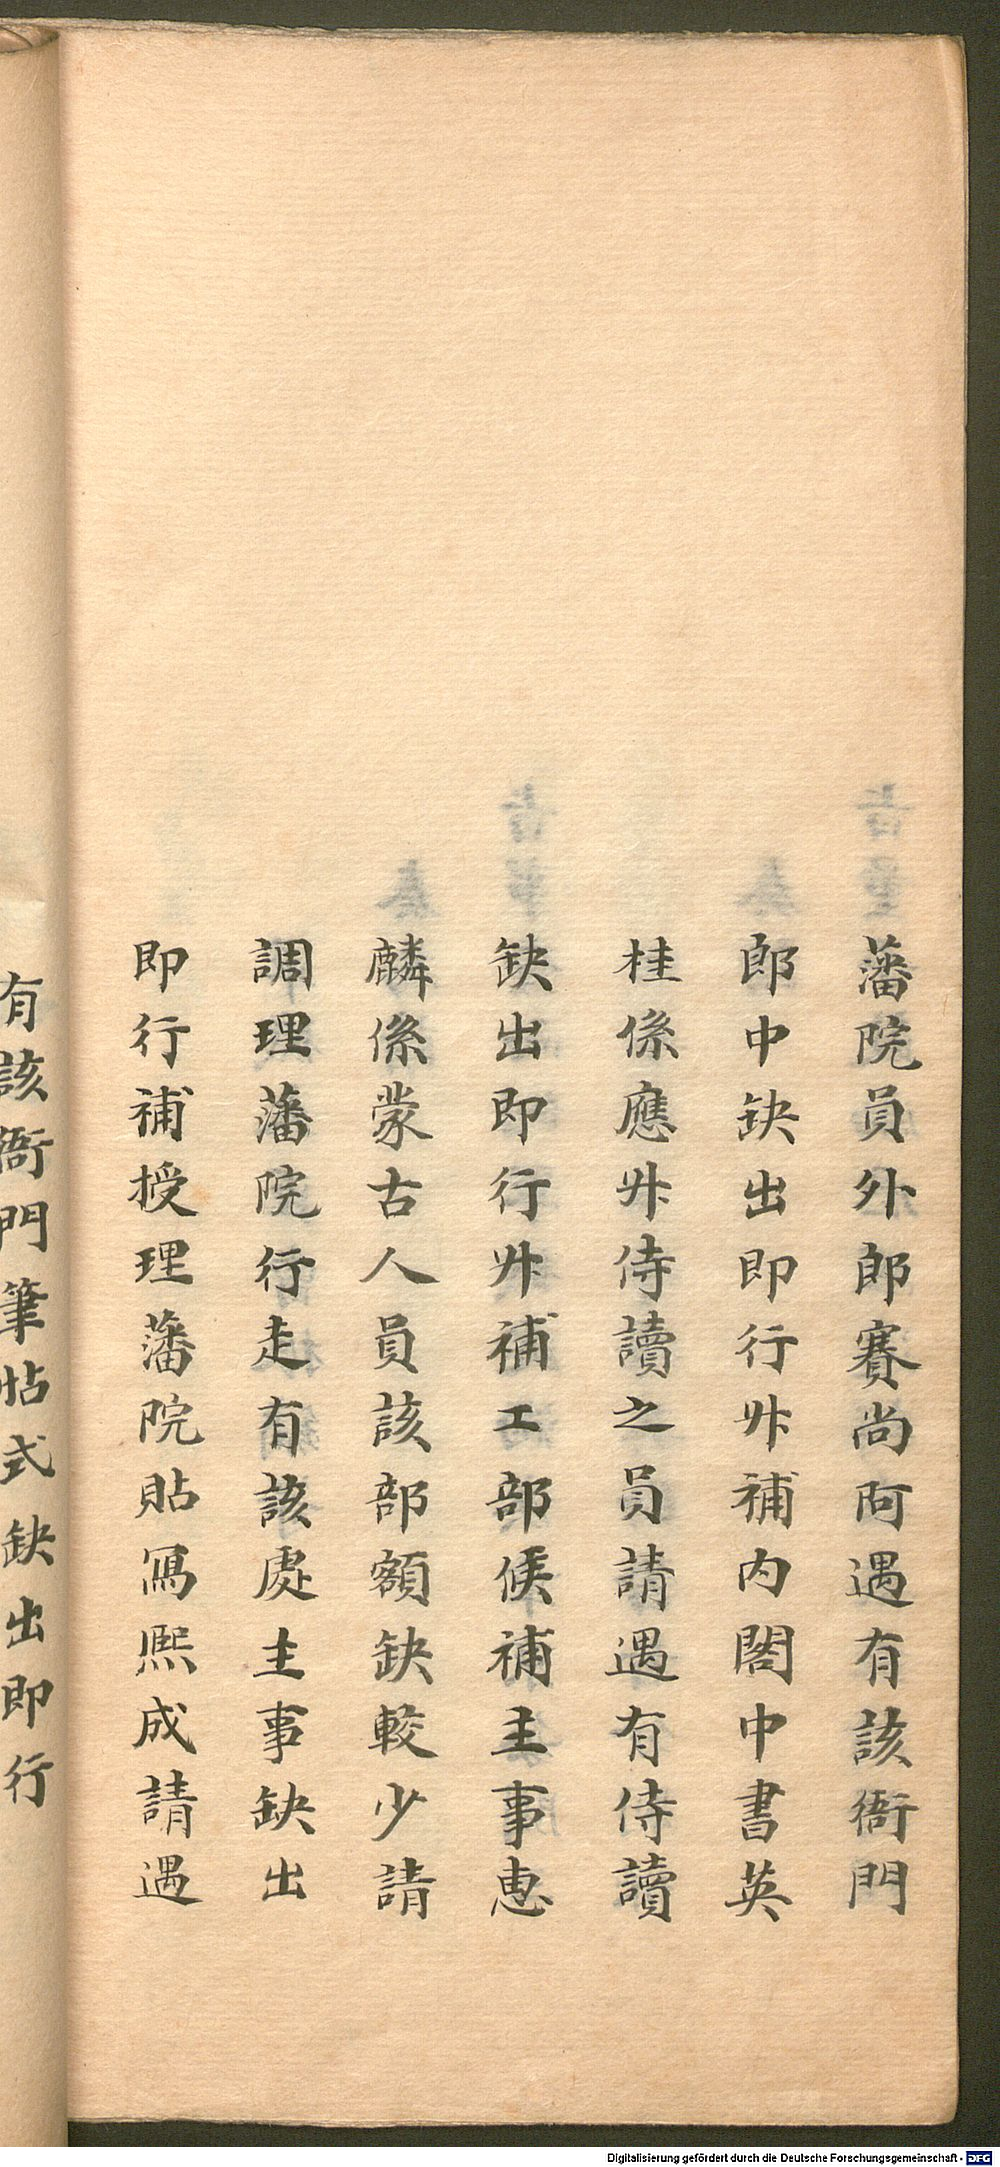 藩院員外郎賽尚阿遇有該衙門
郎中缺出即行升補内閣中書英
桂係應升侍讀之員請遇有侍讀
缺出即行升補工部候補主事惠
麟係蒙古人員該部額缺較少請
調理藩院行走有該處主事缺出
即行補授理藩院貼寫熙成請遇
有該衙門筆帖式缺出即行
Digitalisierung gefördert durch die Deutsche Forschungsgemeinschaft - DFG